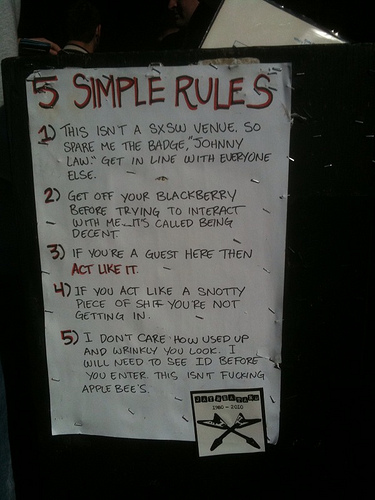 5 SIMPLE RULES
1) THIS ISN'T A SXSW VENUE. SO
SPARE ME THE BADGE, "JOHNNY
LAW." GET IN LINE WITH EVERYONE
ELSE.
2) GET OFF YOUR BLACKBERRY
BEFORE TRYING TO INTERACT
WITH ME...IT'S CALLED BEING
DECENT.
3) IF YOU'RE A GUEST HERE THEN
ACT LIKE IT.
4) IF YOU ACT LIKE A SNOTTY
PIECE OF SHIT YOU'RE NOT
GETTING IN.
5) I DON'T CARE HOW USED UP
AND WRINKLY YOU LOOK. I
WILL NEED TO SEE ID BEFORE
YOU ENTER. THIS ISN'T FUCKING
APPLEBEE'S.
1980-2010